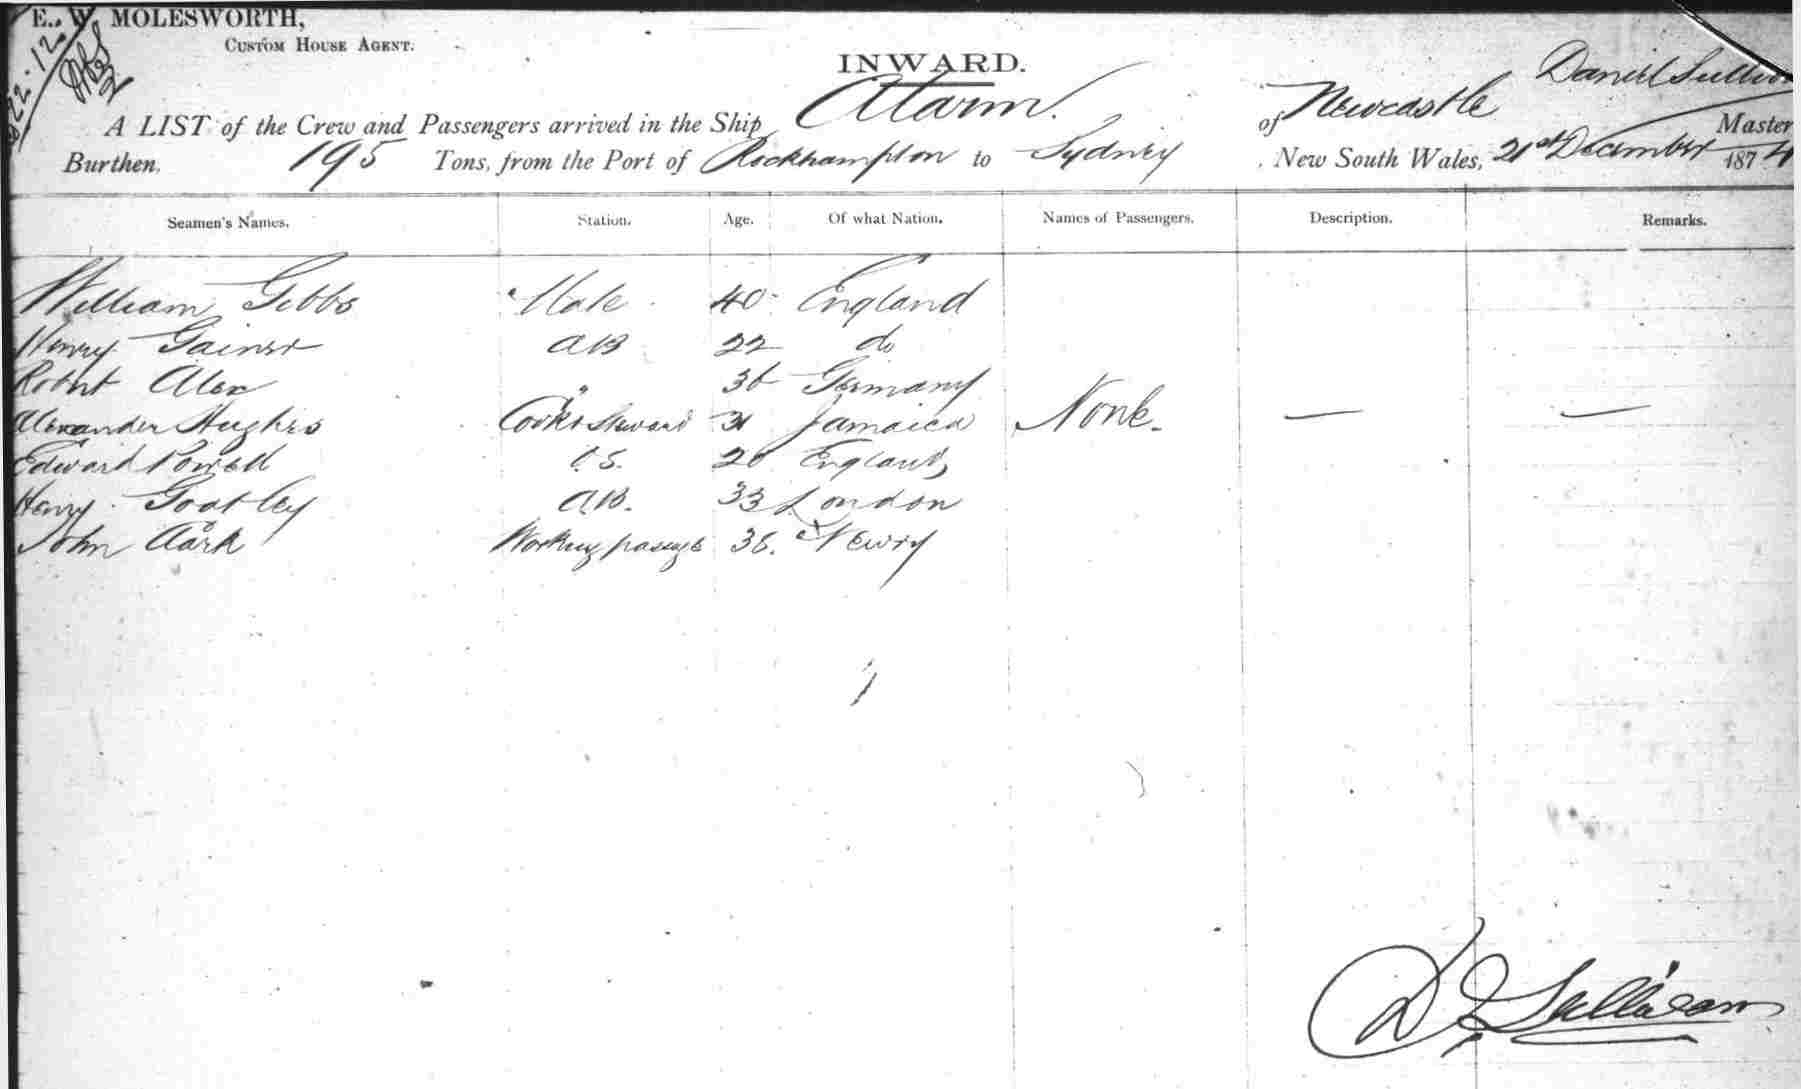 E. W. MOLESWORTH,
CUSTOM HOUSE AGENT.
22.12
INWARD.
Daniel Sullivan
A LIST of the Crew and Passengers arrived in the Ship Alarm. of Newcastle Master
Burthen, 195 Tons, from the Port of Rockhampton to Sydney, New South Wales, 21st December 1874
Seamen's Names. Station. Age. Of what Nation. Names of Passengers. Description. Remarks.
William Gibbs Mate 40 England
Henry Gainer AB 22 do
Robert Alex " 36 Germany
Alexander Hughes Cook & Steward 31 Jamaica None. — —
Edward Powell O.S. 20 England
Henry Goatley AB. 33 London
John Park Working passage 36. Newry
D Sullivan